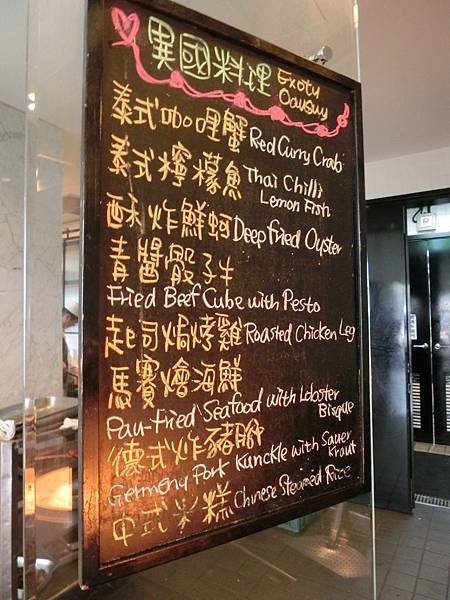 異國料理 Exoty
泰式咖哩蟹 Red Curry Crab
泰式檸檬魚 Thai Chilli
Lemon Fish
酥炸鮮蚵 Deep fried Oyster
青醬骰子牛
Fried Beef Cube with Pesto
起司焗烤雞 Roasted Chicken Leg
馬賽燴海鮮
Pan-Fried Seafood with Lobster
Bisque
德式炸豬腳
Germeny Pork Kunckle with Sauer
Kraut
中式米糕 Chinese Steamed Rice